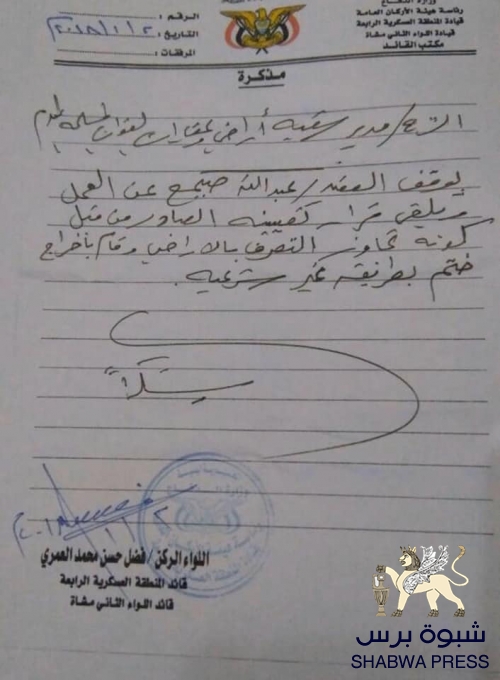 وزارة الدفاع
رئاسة هيئة الأركان العامة
قيادة المنطقة العسكرية الرابعة
قيادة اللواء الثاني مشاة
مكتب القائد
الرقم :
التاريخ : ٢ / ١ / ٢٠١٨
المرفقات :
مذكرة
الأخ / مدير أراضي وعقارات القوات المسلحة
يوقف العقيد / عبدالله صبمح عن العمل
ويلغى قرار تعيينه الصادر من قبل
كونه تجاوز التصرف بالاراضي وقام بأخراج
ختم بطريقه غير شرعيه .
اللواء الركن / فضل حسن محمد العمري
قائد المنطقة العسكرية الرابعة
قائد اللواء الثاني مشاة
شبوة برس
SHABWA PRESS